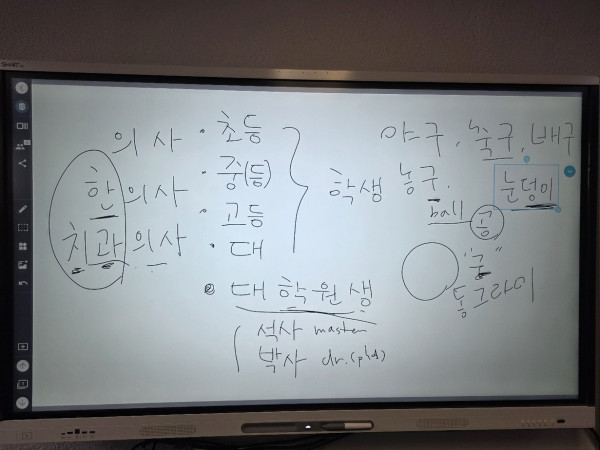 SMART
의사
한의사
치과의사
· 초등
· 중(등)
· 고등
· 대
학생
대학원생
석사 master
박사 dr. (phd)
야구, 축구, 배구
농구.
눈덩이
ball 공
"궁"
동그라미